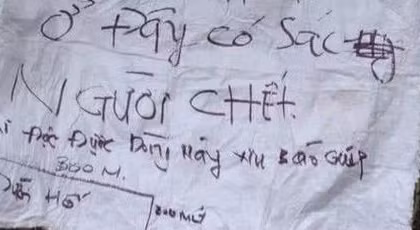 Ở ĐÂY CÓ SÁC
NGƯỜI CHẾT.
Đọc Được Dòng Này xin Báo Giúp
300 M.
300 M